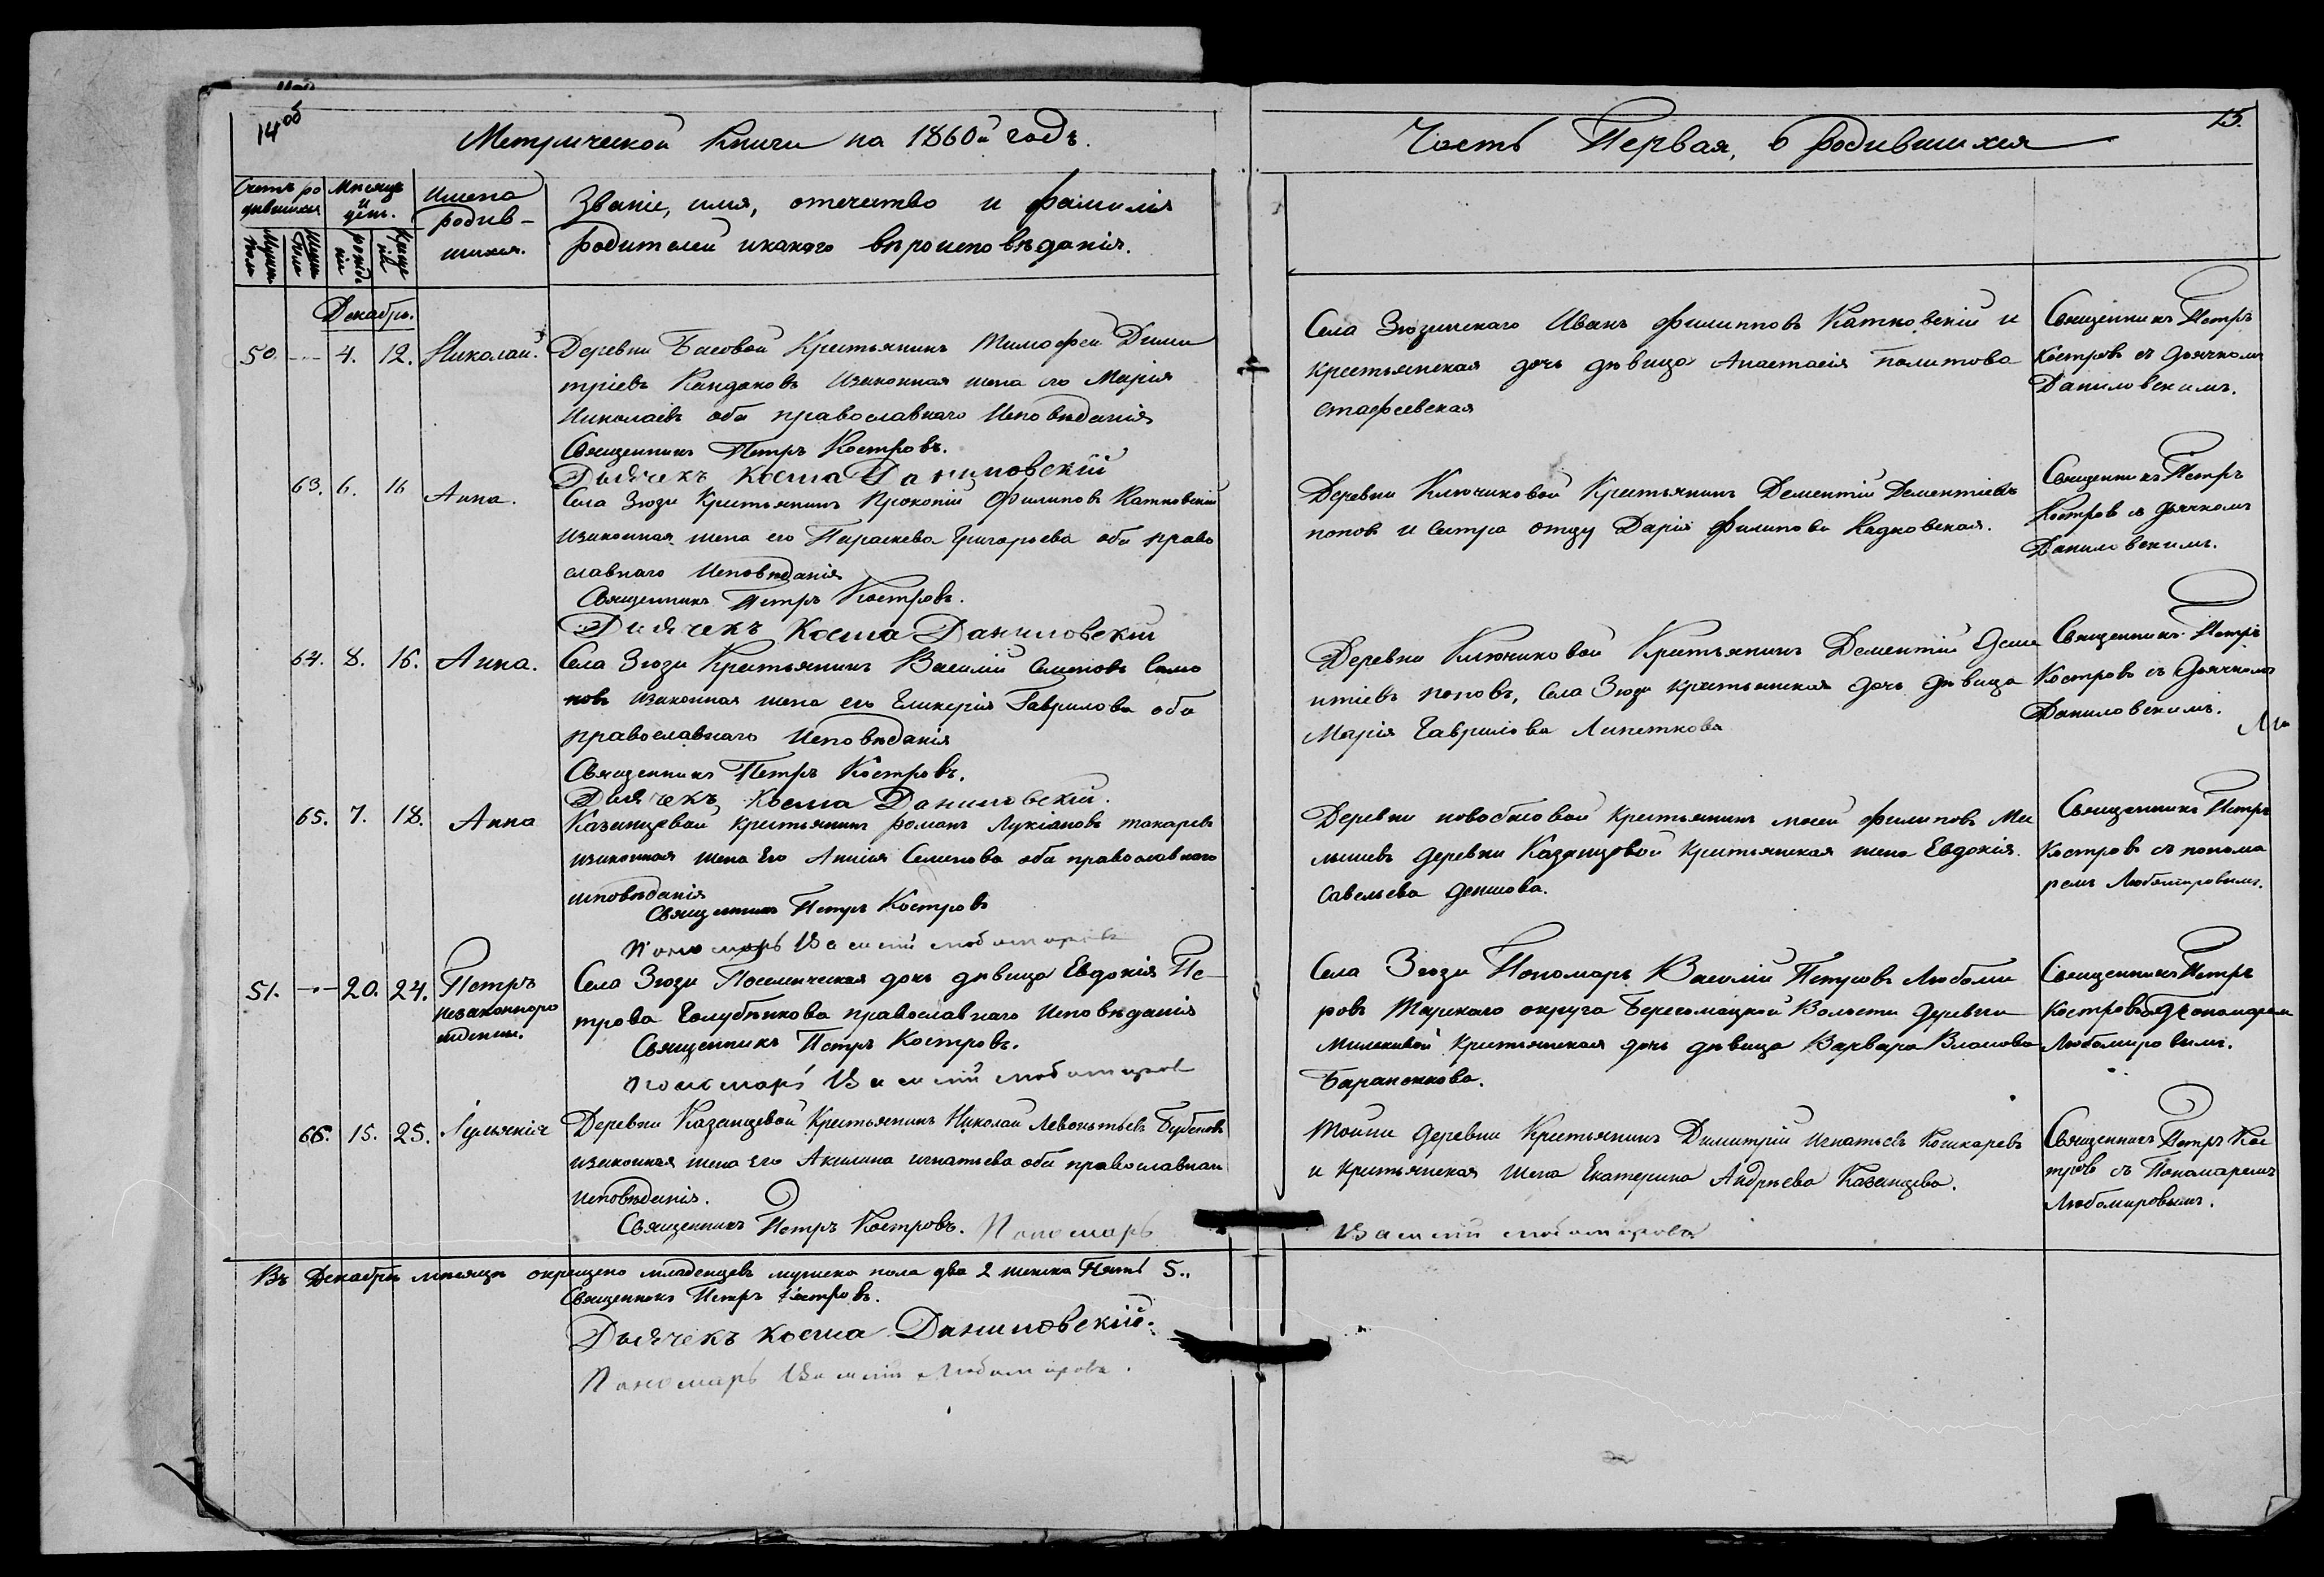 14об
Метрической Книги на 1860й годъ.
Счетъ ро
дившихся
Мѣсяцъ
и
день.
Имена
родив-
шихся.
Званіе, имя, отечество и фамилія
родителей и какого вѣроисповѣданія.
Декабрь.
50. 4. 12. Николай. Деревни Басовой Крестьянинъ Тимофей Дими
тріевъ Кандаковъ изаконная жена его Марія
Николаевъ оба православнаго Исповѣданія
Священникъ Петръ Костровъ.
Дьячекъ Косма Даниловскій
63. 6. 16 Анна. Села Зюзи Крестьянинъ Прокопій Филиповъ Катковскій
изаконная жена его Параскева Григорьева оба право
славнаго Исповѣданія
Священникъ Петръ Костровъ.
Дьячекъ Косма Даниловскій
64. 8. 16. Анна. Села Зюзи Крестьянинъ Василій Семеновъ
изаконная жена его Гаврилова оба
православнаго Исповѣданія
Священникъ Петръ Костровъ.
Дьячекъ Косма Даниловскій.
65. 7. 18. Анна Казанцевой крестьянинъ романъ Лукіановъ токаревъ
изаконная жена Его Анисія Семенова оба православнаго
исповѣданія
Священникъ Петръ Костровъ
Пономарь Василій Любомировъ
51. 20. 24. Петръ
незаконноро
жденный.
Села Зюзи дочь дѣвица Евдокія Пе-
трова Голубникова православнаго Исповѣданія
Священникъ Петръ Костровъ.
Пономарь Василій Любомировъ
66. 15. 25. Іуліанія Деревни Казанцевой Крестьянинъ Николай Левонтьевъ Бубеновъ
изаконная жена Его Акилина игнатьева оба православнаго
исповѣданія.
Священникъ Петръ Костровъ. Пономарь
Въ Декабрѣ мѣсяцѣ окрещено младенцевъ мужска пола два 2 женска Пять 5..
Священникъ Петръ Костровъ.
Дьячекъ Косма Даниловскій.
Пономарь Василій Любомировъ.
15.
Часть Первая, о родившихся
Села Зюзинскаго Иванъ Филипповъ Катковскій и
крестьянская дочь дѣвица Анастасія политова
стафеевская
Священникъ Петръ
Костровъ съ дьячкомъ
Даниловскимъ.
Деревни Ключиковой Крестьянинъ Дементій Дементіевъ
поповъ и Сестра отцу Дарія Филипова Кадковская.
Священникъ Петръ
Костровъ съ дьячкомъ
Даниловскимъ.
Деревни Ключиковой Крестьянинъ Дементій Деме
нтіевъ поповъ, Села Зюзи крестьянская дочь дѣвица
Марія Гаврилова Липеткова
Священникъ Петръ
Костровъ съ Дьячкомъ
Даниловскимъ.
Деревни новобасовой крестьянинъ мосей филиповъ
деревни Казанцовой крестьянская жена Евдокія
Савельева
Священникъ Петръ
Костровъ съ понома
ремъ Любомировымъ.
Села Зюзи Пономарь Василій Петровъ Любоми
ровъ Тарскаго округа Волости деревни
Крестьянская дочь дѣвица Варвара Власова
Баранокова.
Священникъ Петръ
Костровъ съ Пономаремъ
Любомировымъ.
Тойжи деревни Крестьянинъ Димитрій Игнатьевъ Кошкаревъ
и крестьянская жена Екатерина Андрѣева Казанцева.
Василій Любомировъ
Священникъ Петръ Кос
тровъ съ Пономаремъ
Любомировымъ.